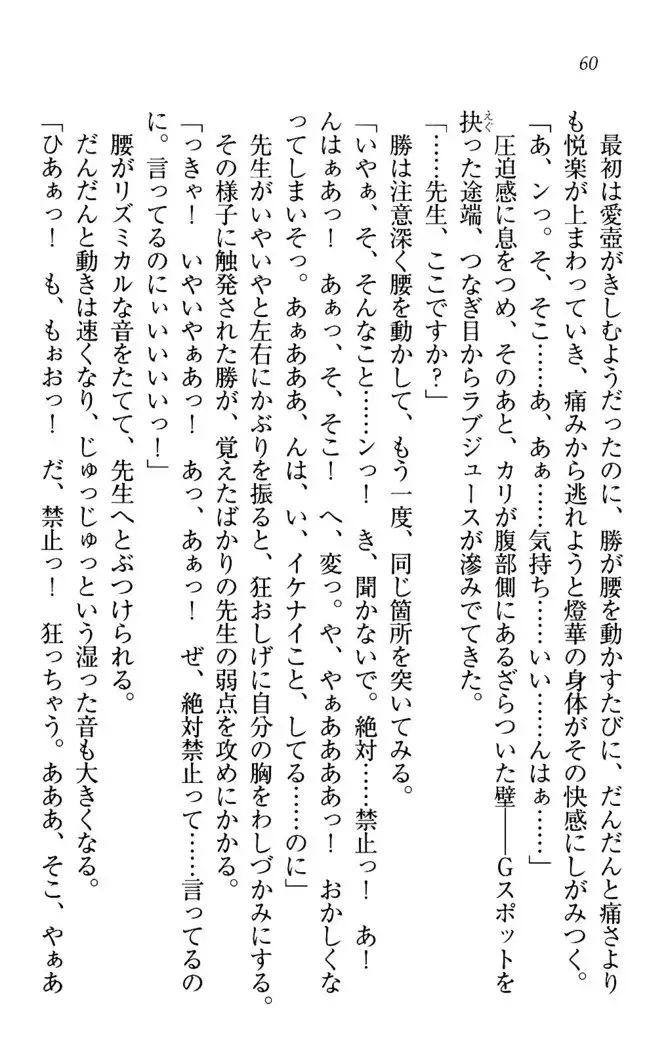 60
最初は愛壺がきしむようだったのに、勝が腰を動かすたびに、だんだんと痛さより
も悦楽が上まわっていき、痛みから逃れようと燈華の身体がその快感にしがみつく。
「あ、ンっ。そ、そこ……あ、あぁ……気持ち……いい……んはぁ……」
圧迫感に息をつめ、そのあと、カリが腹部側にあるざらついた壁――Gスポットを
抉った途端、つなぎ目からラブジュースが滲みでてきた。
えぐ
「……先生、ここですか?」
勝は注意深く腰を動かして、もう一度、同じ箇所を突いてみる。
「いやぁ、そ、そんなこと……ンっ! き、聞かないで。絶対……禁止っ! あ!
んはぁあっ! あぁっ、そ、そこ! へ、変っ。や、やぁああああっ! おかしくな
ってしまいそっ。あぁあああ、んは、い、イケナイこと、してる……のに」
先生がいやいやと左右にかぶりを振ると、狂おしげに自分の胸をわしづかみにする。
その様子に触発された勝が、覚えたばかりの先生の弱点を攻めにかかる。
「っきゃ! いやいやぁあっ! あっ、あぁっ! ぜ、絶対禁止って……言ってるの
に。言ってるのにぃいいいいっ!」
腰がリズミカルな音をたてて、先生へとぶつけられる。
だんだんと動きは速くなり、じゅっじゅっという湿った音も大きくなる。
「ひあぁっ! も、もぉおっ! だ、禁止っ! 狂っちゃう。あああ、そこ、やぁあ